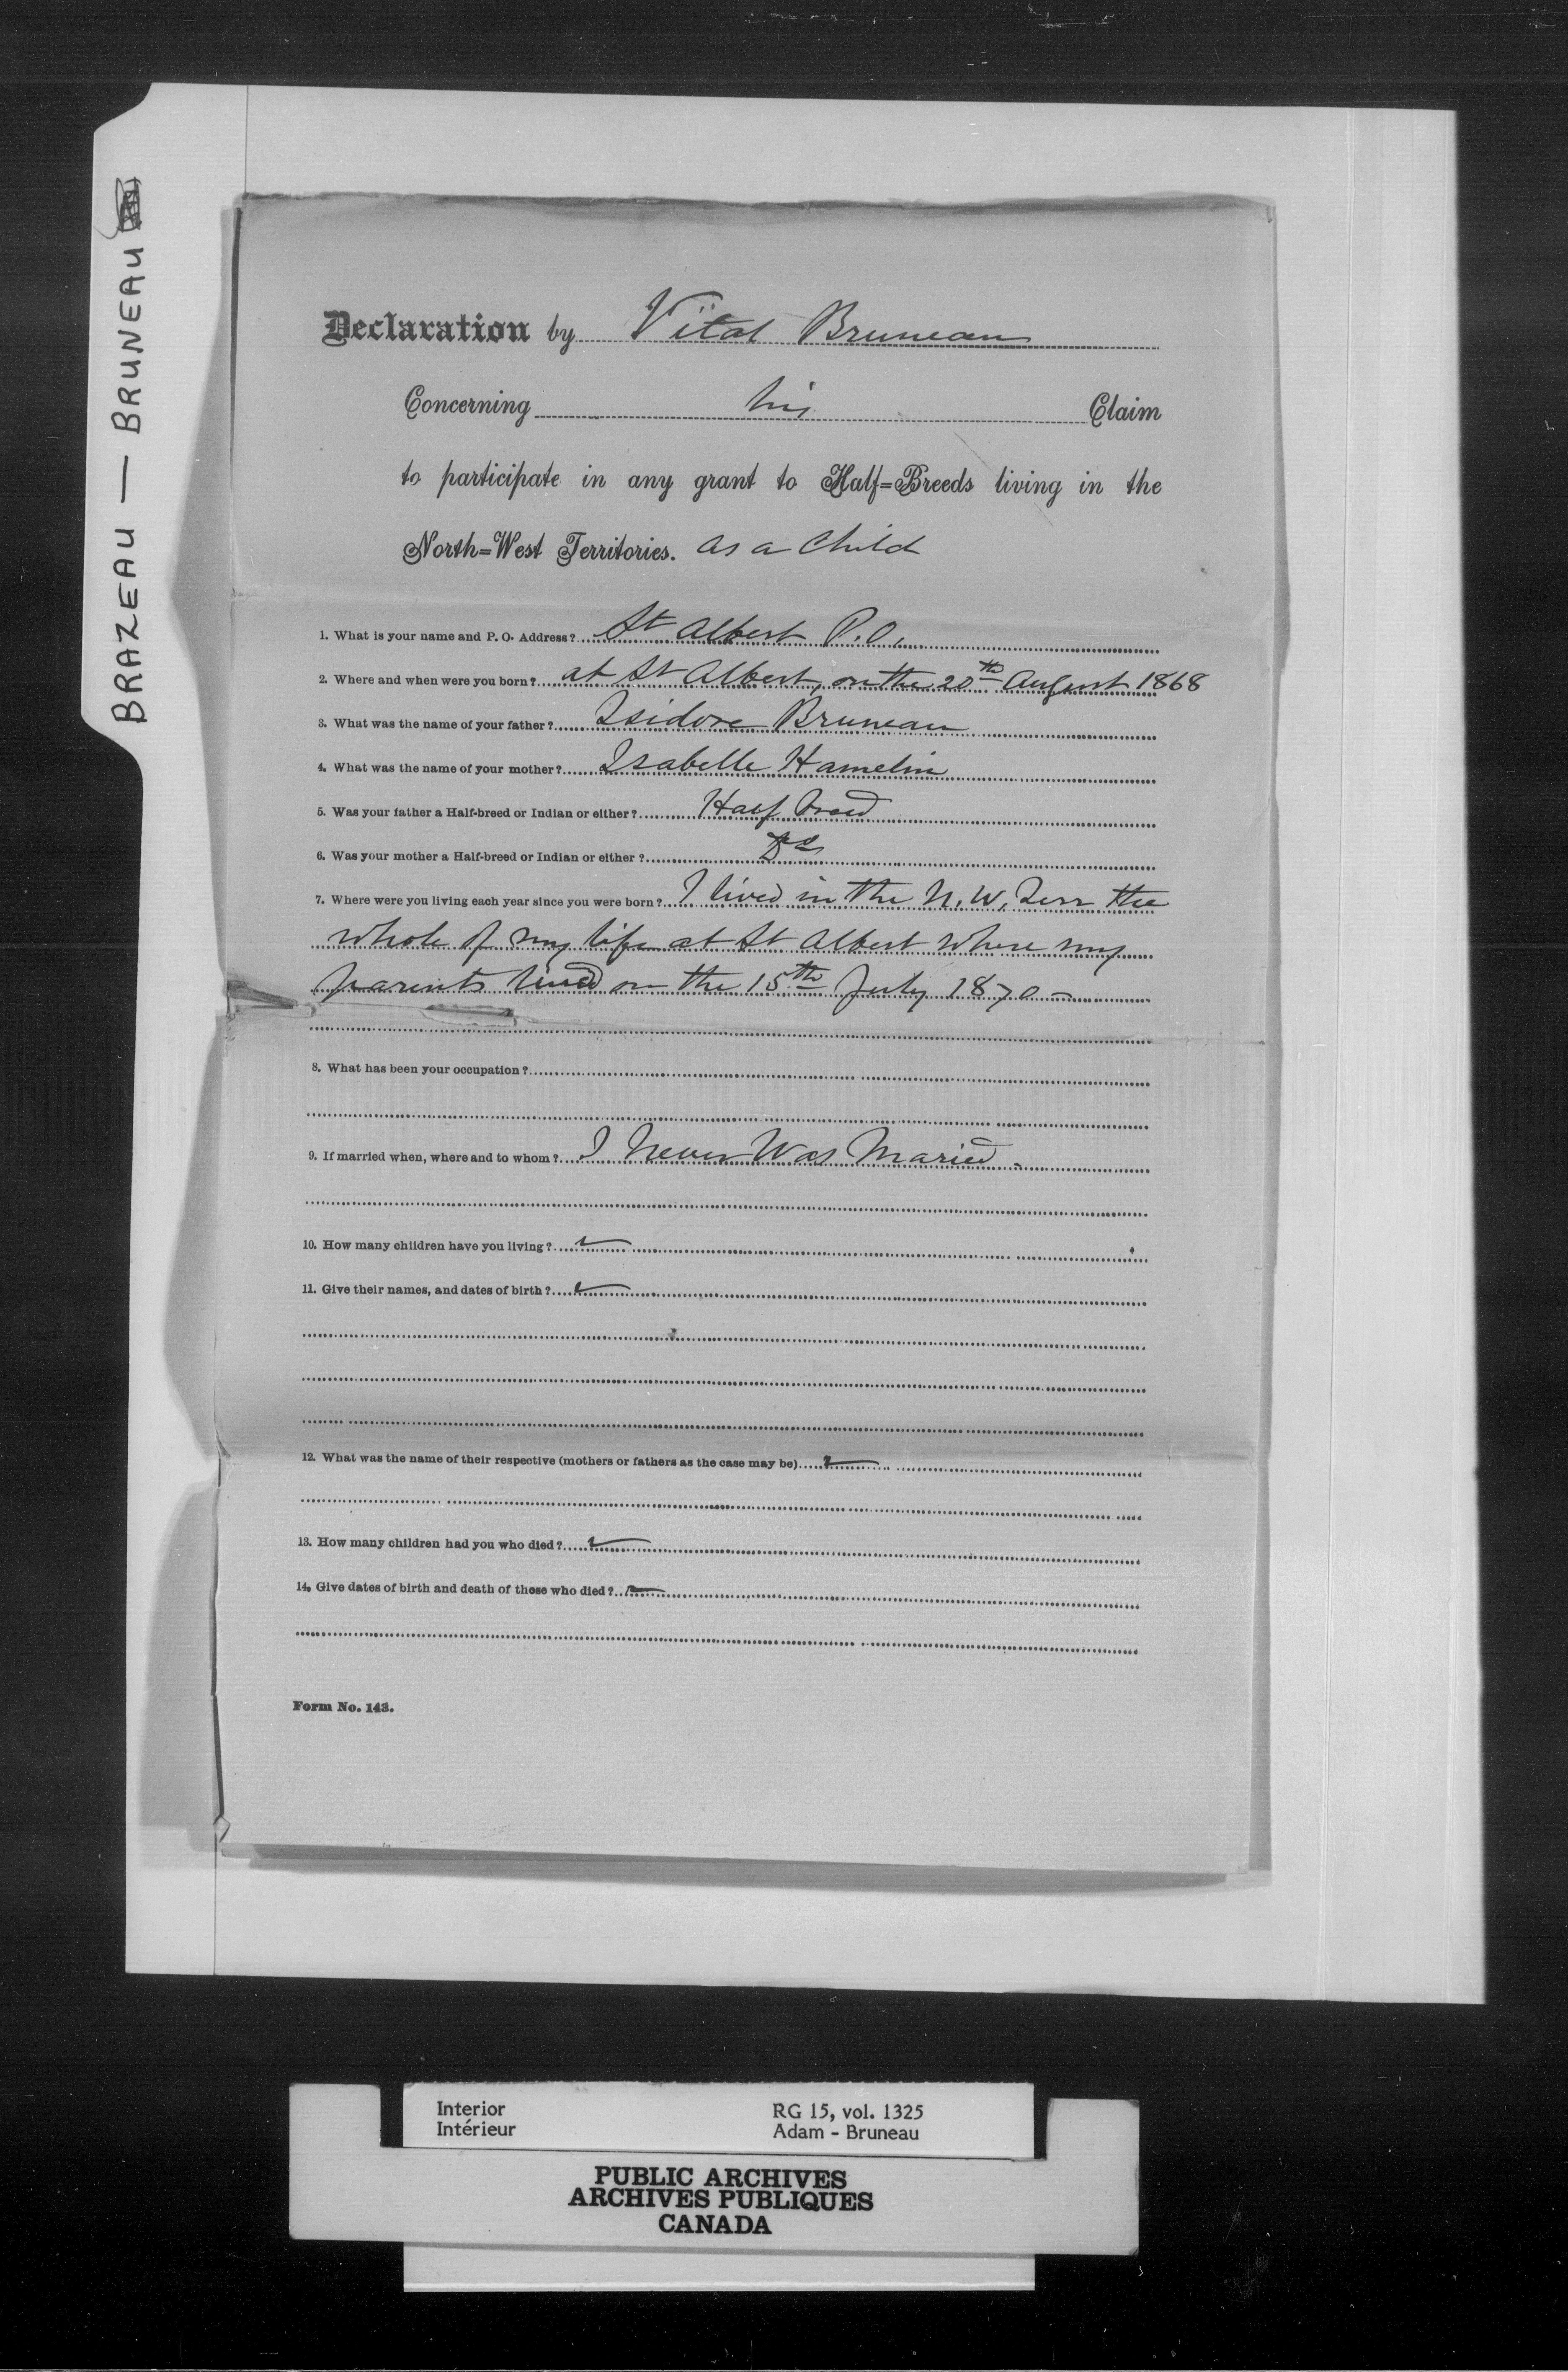 BRAZEAU — BRUNEAU
Declaration by Vital Bruneau
Concerning his Claim
to participate in any grant to Half=Breeds living in the
North=West Territories. as a Child
1. What is your name and P. O. Address? St Albert P.O.
2. Where and when were you born? at St Albert, on the 20th August 1868
3. What was the name of your father? Isidore Bruneau
4. What was the name of your mother? Isabelle Hamelin
5. Was your father a Half-breed or Indian or either? Half breed
6. Was your mother a Half-breed or Indian or either? Do
7. Where were you living each year since you were born? I lived in the N. W. Terr the
whole of my life at St Albert where my
parents lived on the 15th July 1870 –
8. What has been your occupation?
9. If married when, where and to whom? I Never Was Maried –
10. How many children have you living?
11. Give their names, and dates of birth?
12. What was the name of their respective (mothers or fathers as the case may be)
13. How many children had you who died?
14. Give dates of birth and death of those who died?
Form No. 143.
Interior RG 15, vol. 1325
Intérieur Adam - Bruneau
PUBLIC ARCHIVES
ARCHIVES PUBLIQUES
CANADA